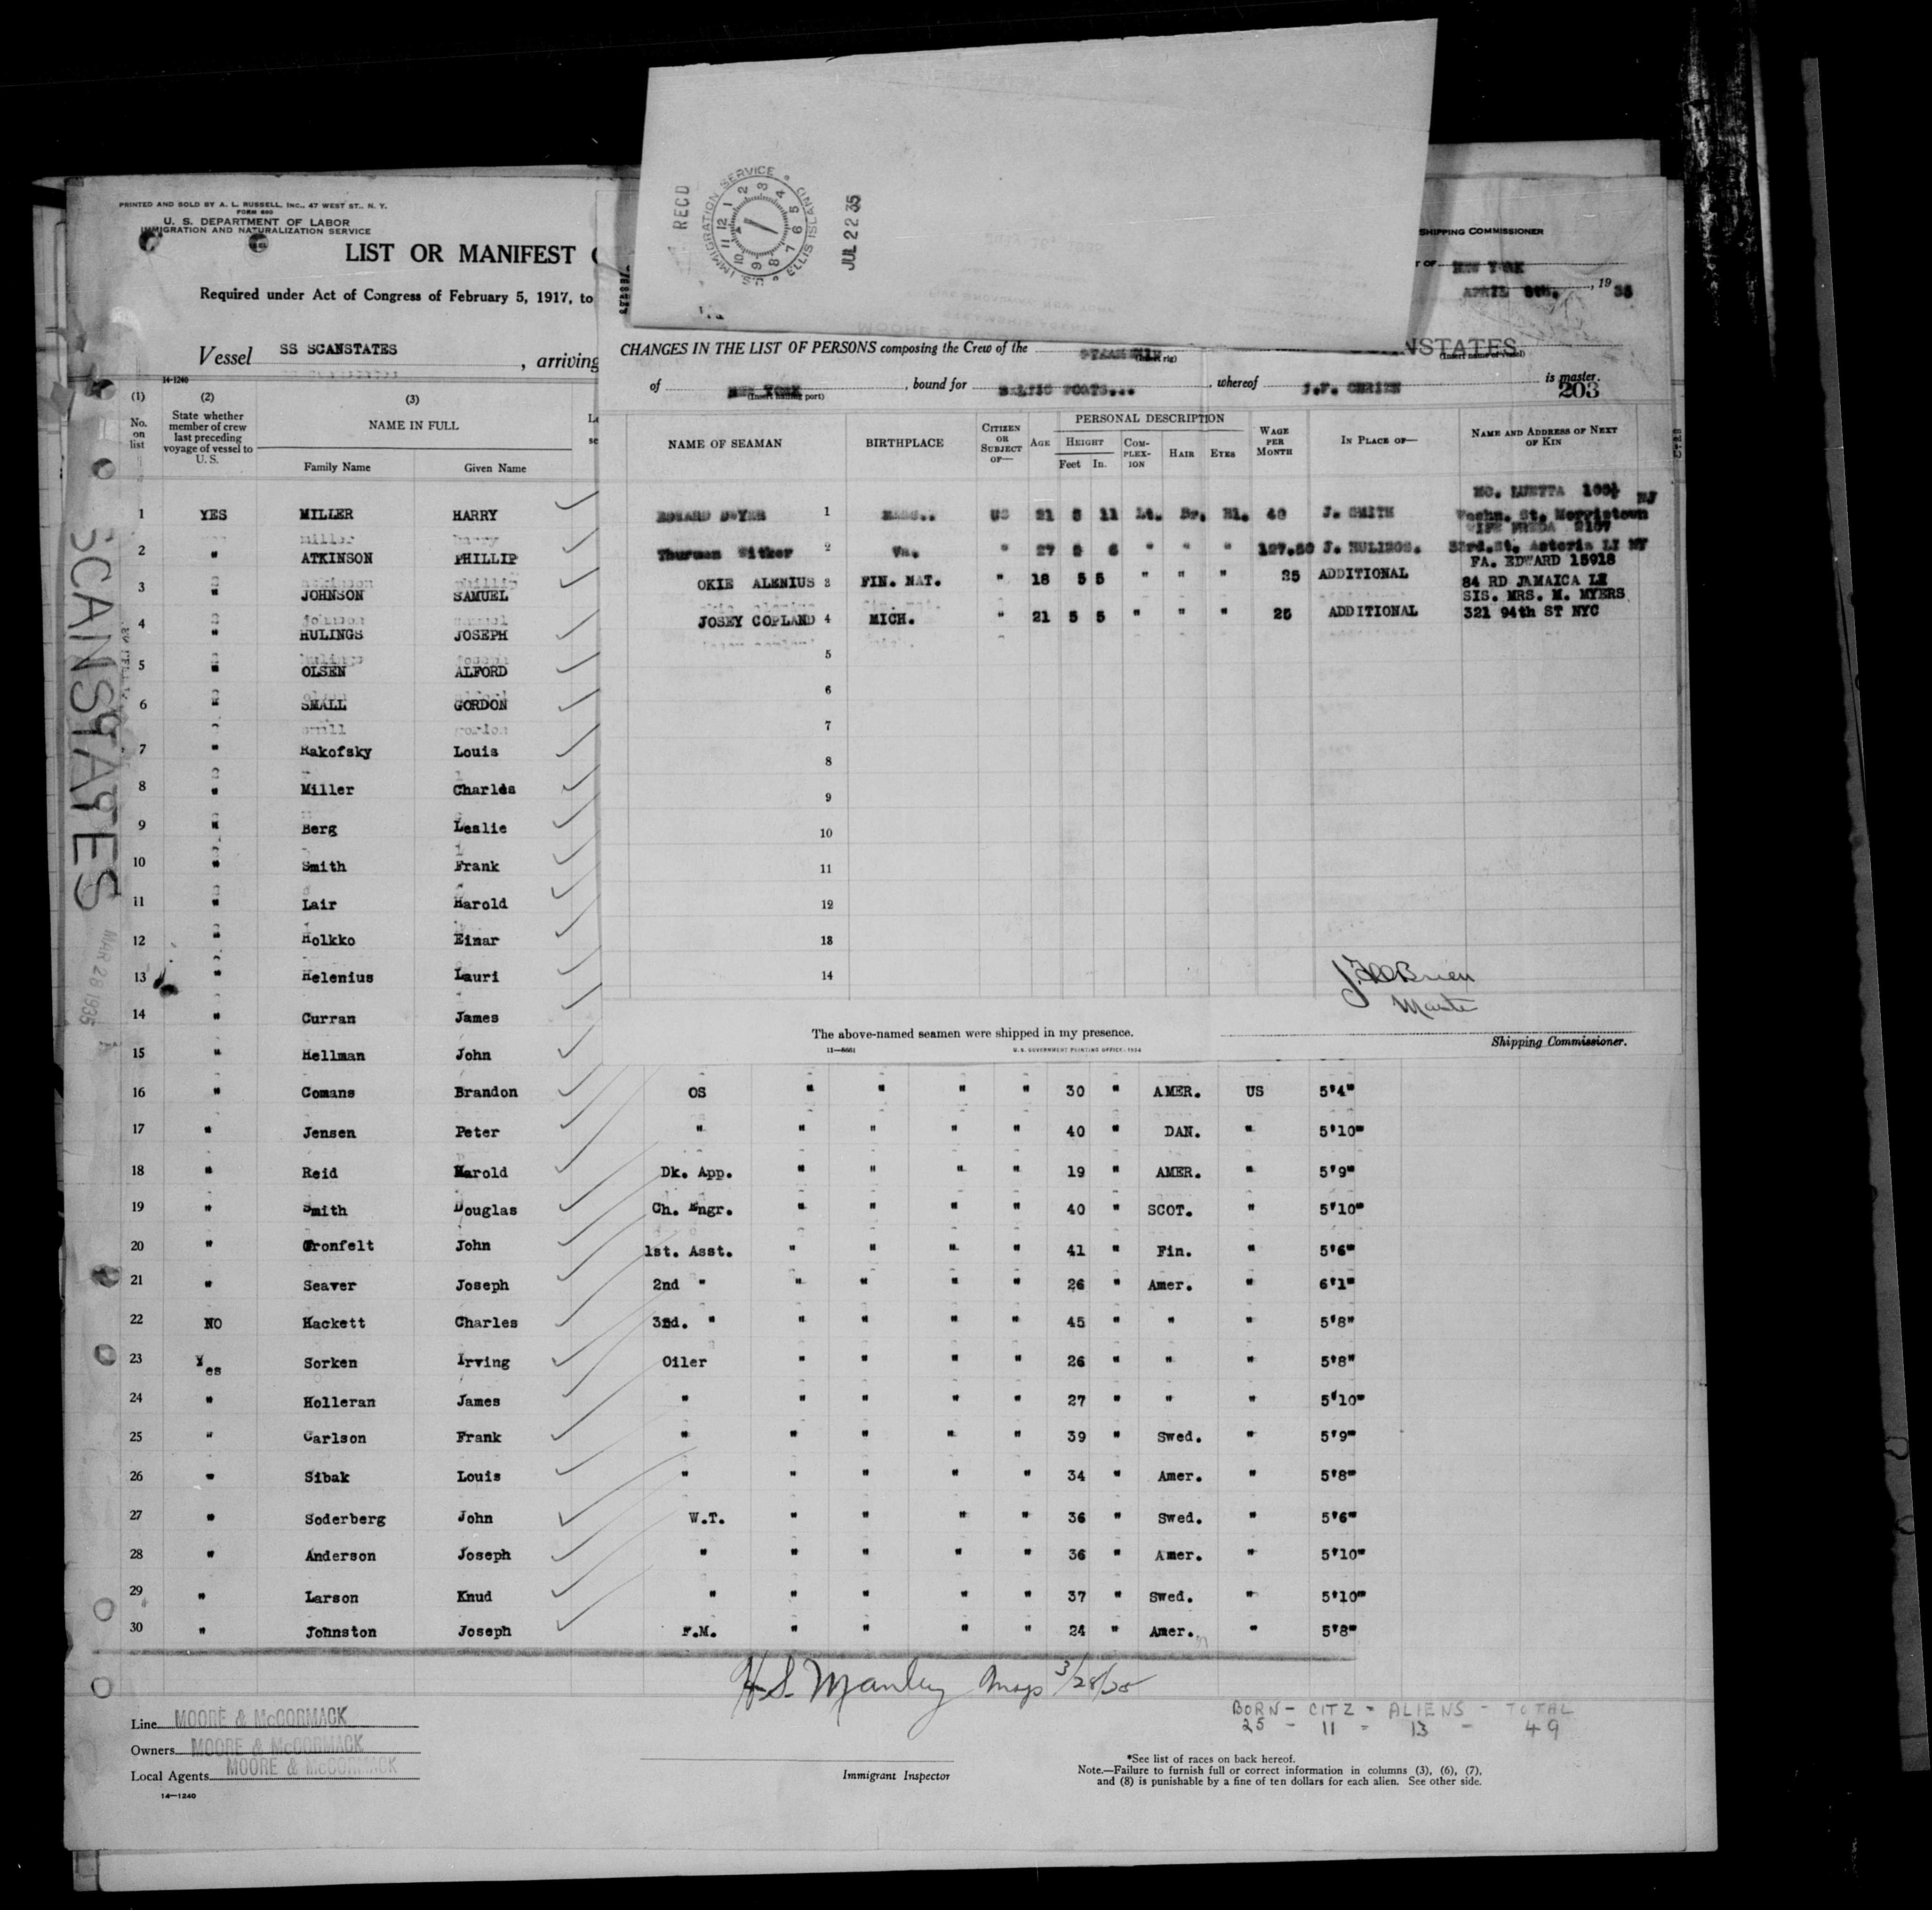 PRINTED AND SOLD BY A. L. RUSSELL, INC., 47 WEST ST., N. Y.
FORM 680
U. S. DEPARTMENT OF LABOR
IMMIGRATION AND NATURALIZATION SERVICE
LIST OR MANIFEST
Required under Act of Congress of February 5, 1917, to
Vessel SS SCANSTATES, arriving
14-1240
(1) (2) (3)
No. on list
State whether member of crew last preceding voyage of vessel to U. S.
NAME IN FULL
Family Name Given Name
1 YES MILLER HARRY
2 " ATKINSON PHILLIP
3 " JOHNSON SAMUEL
4 " HULINGS JOSEPH
5 " OLSEN ALFORD
6 " SMALL GORDON
7 " Rakofsky Louis
8 " Miller Charles
9 " Berg Leslie
10 " Smith Frank
11 " Lair Harold
12 " Holkko Einar
13 " Helenius Lauri
14 " Curran James
15 " Hellman John
SCANSTATES
MAR 28 1935
RECD
U.S. IMMIGRATION SERVICE
ELLIS ISLAND
12 1 2 3 4 5 6 7 8 9 10 11
JUL 22 35
SHIPPING COMMISSIONER
OF NEW YORK
APRIL 8th., 1935
CHANGES IN THE LIST OF PERSONS composing the Crew of the STEAMSHIP NSTATES
(Insert rig) (Insert name of vessel)
of NEW YORK, bound for BALTIC PORTS..., whereof J.F. OBRIEN is master.
(Insert hailing port) 203
NAME OF SEAMAN BIRTHPLACE CITIZEN OR SUBJECT OF— AGE PERSONAL DESCRIPTION WAGE PER MONTH IN PLACE OF— NAME AND ADDRESS OF NEXT OF KIN
HEIGHT COMPLEXION HAIR EYES
Feet In.
MO. LUETTA NJ
1 MASS.. US 21 5 11 Lt. Br. Bl. 40 J. SMITH Washn. St. Morristown
WIFE FREDA 2107
Thurman 2 Va. " 27 5 6 " " " 127.50 J. HULINGS. 33rd.St. Astoria LI NY
FA. EDWARD 15918
OKIE ALENIUS 3 FIN. NAT. " 18 5 5 " " " 25 ADDITIONAL 84 RD JAMAICA LI
SIS. MRS. M. MYERS
JOSEY COPLAND 4 MICH. " 21 5 5 " " " 25 ADDITIONAL 321 94th ST NYC
5
6
7
8
9
10
11
12
13
14
J. F. O'Brien
Master
The above-named seamen were shipped in my presence.
Shipping Commissioner.
11—8661 U. S. GOVERNMENT PRINTING OFFICE: 1934
16 " Comans Brandon OS " " " " 30 " AMER. US 5'4"
17 " Jensen Peter " " " " " 40 " DAN. " 5'10"
18 " Reid Harold Dk. App. " " " " 19 " AMER. " 5'9"
19 " Smith Douglas Ch. Engr. " " " " 40 " SCOT. " 5'10"
20 " Gronfelt John 1st. Asst. " " " " 41 " Fin. " 5'6"
21 " Seaver Joseph 2nd " " " " " 26 " Amer. " 6'1"
22 NO Hackett Charles 3rd. " " " " " 45 " " " 5'8"
23 Yes Sorken Irving Oiler " " " " 26 " " " 5'8"
24 " Holleran James " " " " " 27 " " " 5'10"
25 " Carlson Frank " " " " " 39 " Swed. " 5'9"
26 " Sibak Louis " " " " " 34 " Amer. " 5'8"
27 " Soderberg John W.T. " " " " 36 " Swed. " 5'6"
28 " Anderson Joseph " " " " " 36 " Amer. " 5'10"
29 " Larson Knud " " " " " 37 " Swed. " 5'10"
30 " Johnston Joseph F.M. " " " " 24 " Amer. " 5'8"
H.S. Manley 3/28/35
BORN - CITZ - ALIENS - TOTAL
25 - 11 - 13 - 49
Line MOORE & McCORMACK
Owners MOORE & McCORMACK
Local Agents MOORE & McCORMACK
14—1240
Immigrant Inspector
*See list of races on back hereof.
Note.—Failure to furnish full or correct information in columns (3), (6), (7),
and (8) is punishable by a fine of ten dollars for each alien. See other side.